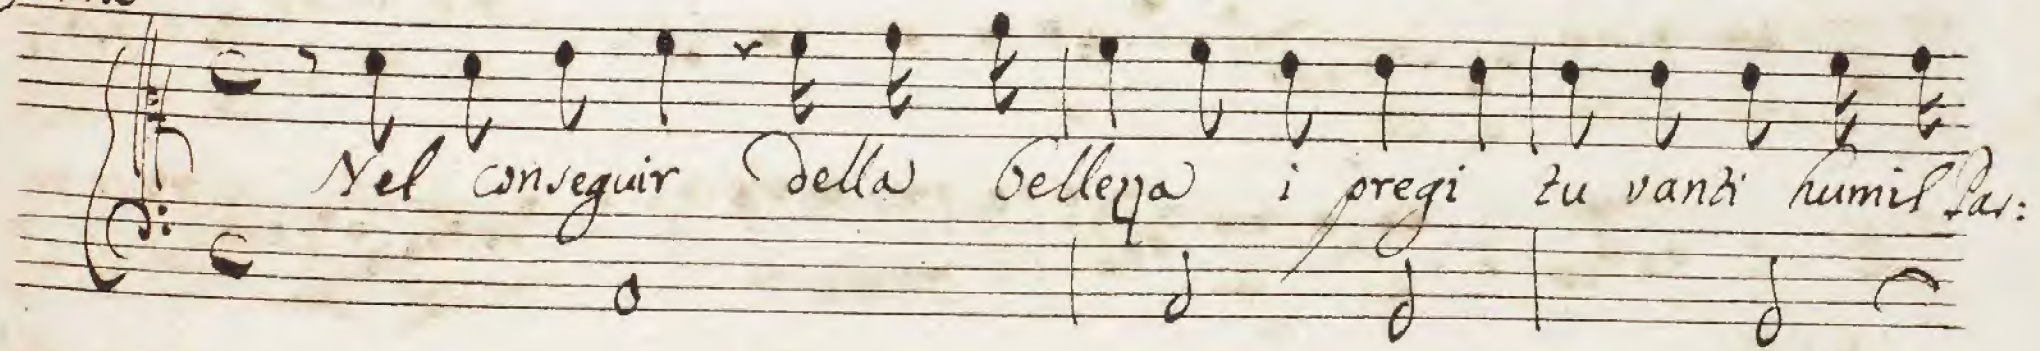 Nel conseguir della bellezza i pregi tu vanti humil Pas: